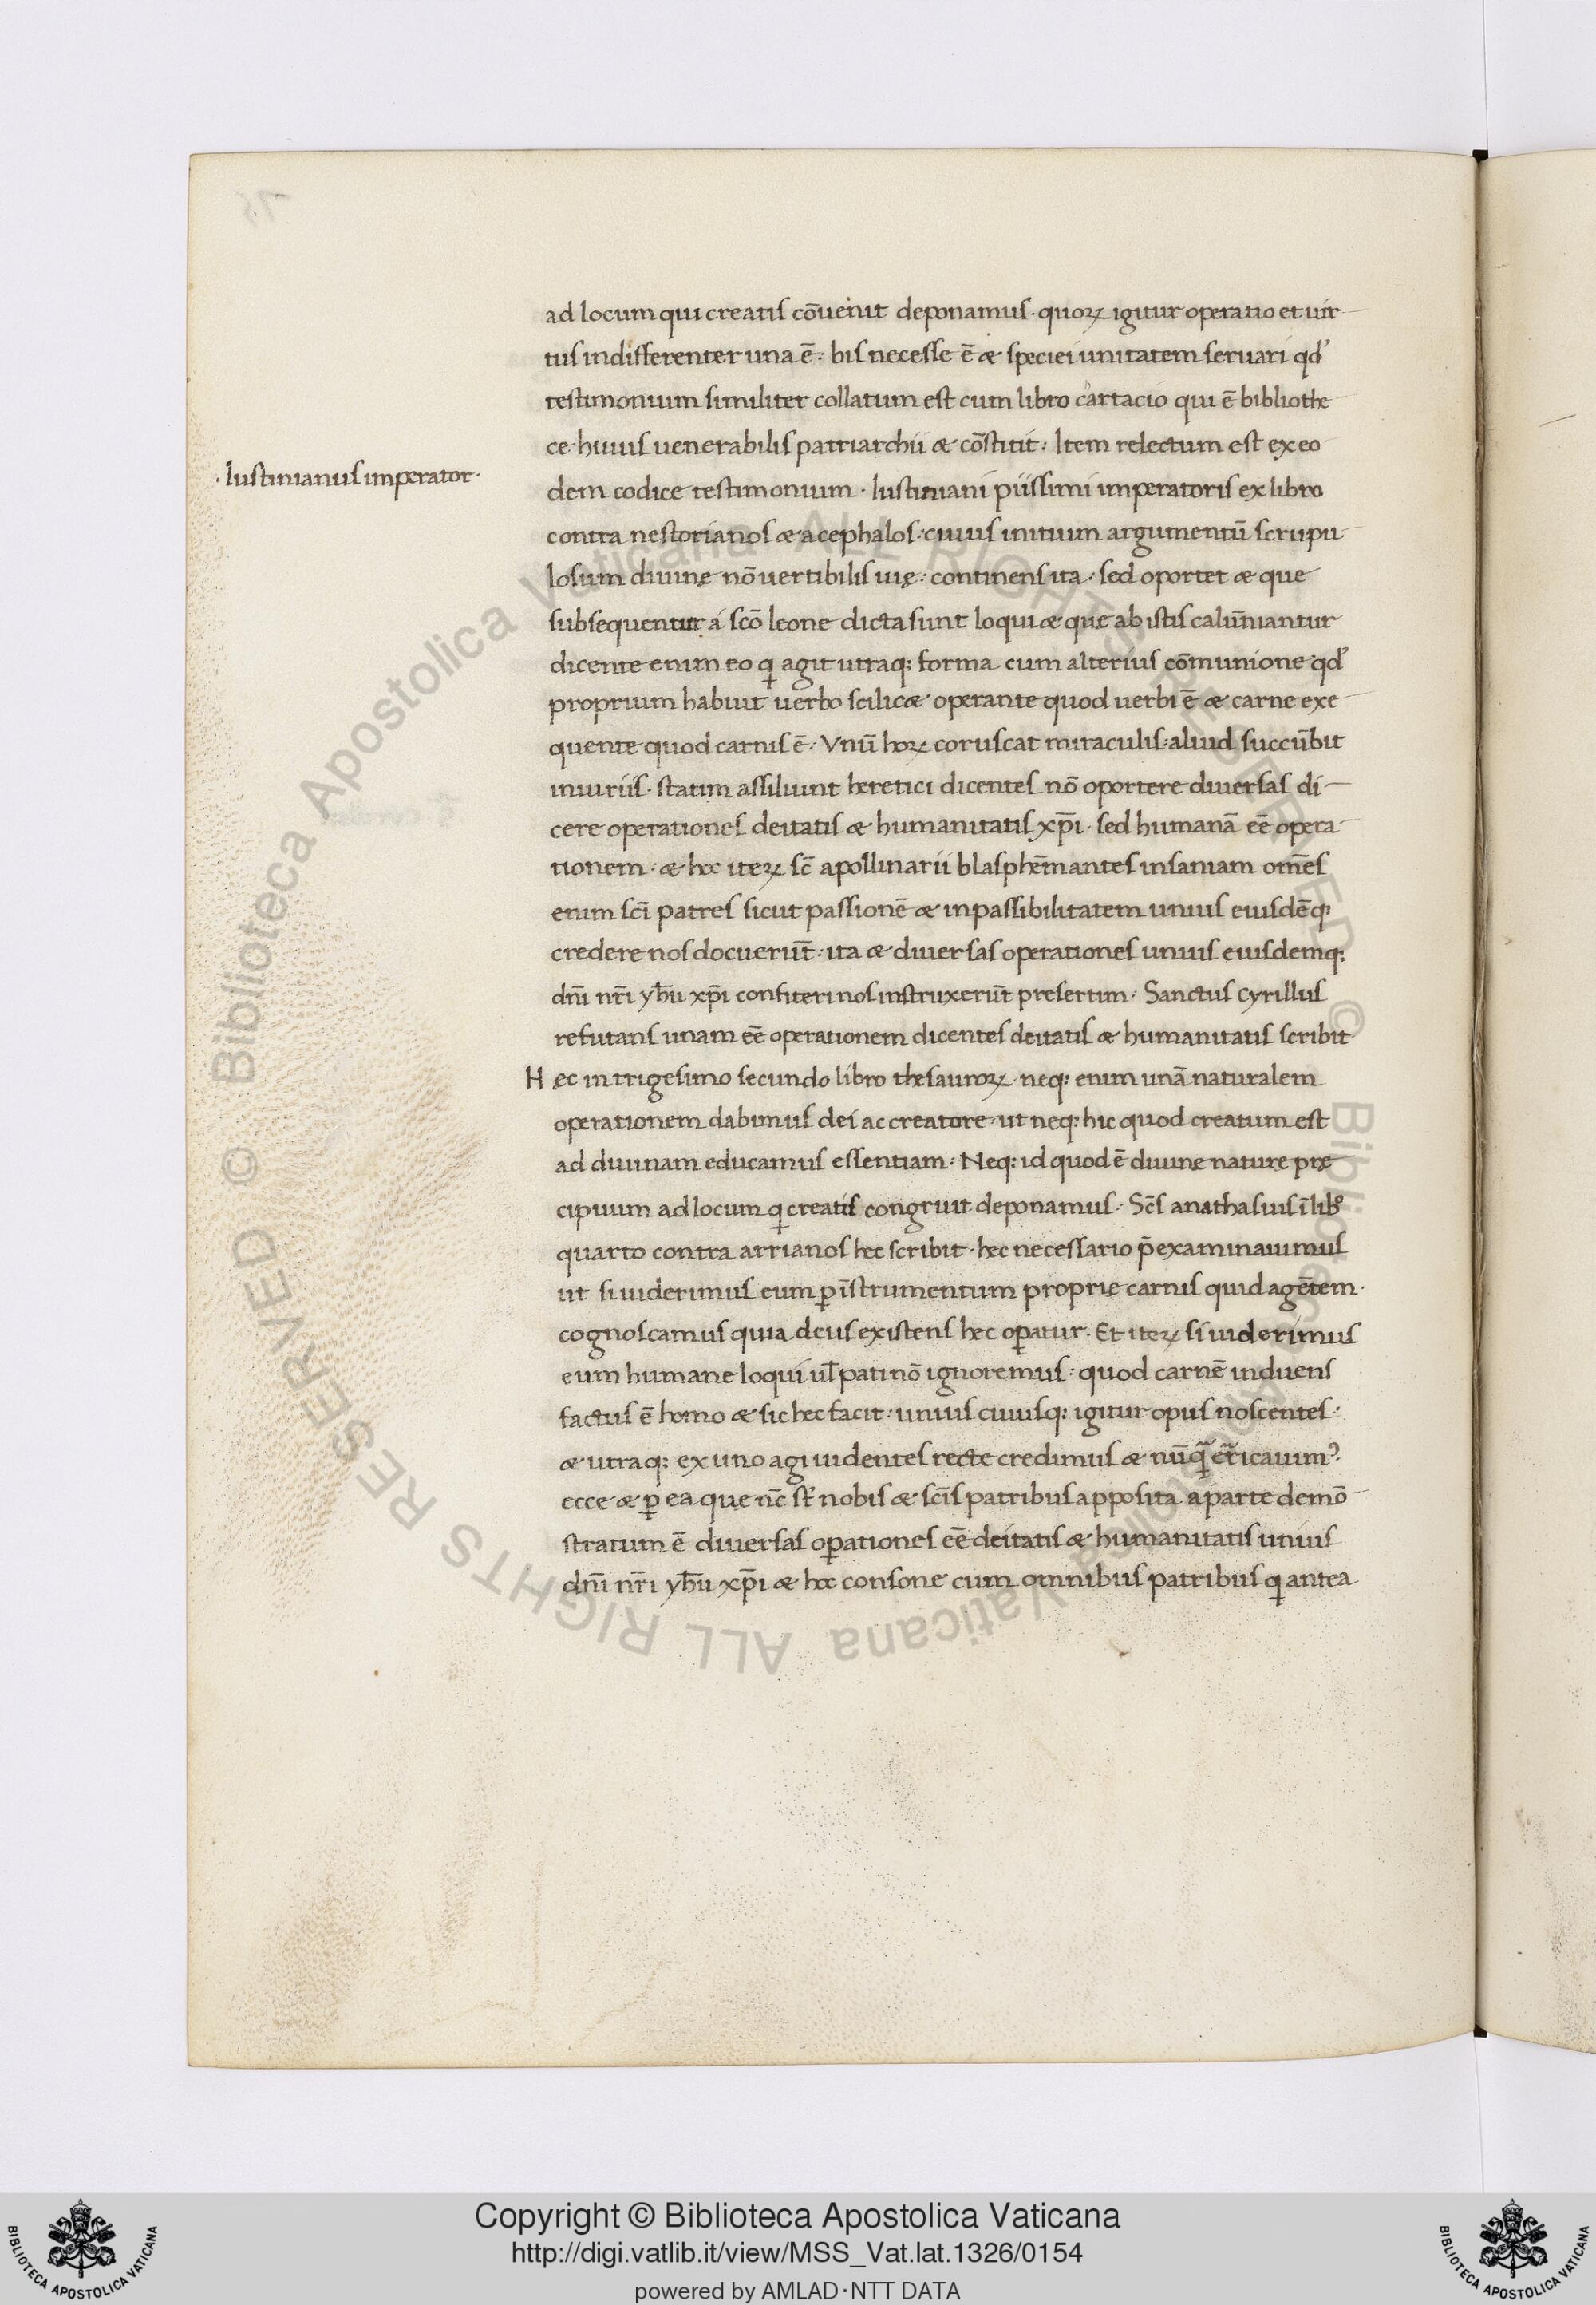 ad locum qui creatis cōuenit deponamus · quoꝝ igitur operatio et uir
tus indifferenter una ē : his necesse ē & speciei unitatem seruari qd'
testimonium similiter collatum est cum libro cartacio qui ē bibliothe
ce huius uenerabilis patriarchii & cōstitit : Item relectum est ex eo
· Iustinianus imperator ·
dem codice testimonium · Iustiniani piissimi imperatoris ex libro
contra nestorianos & acephalos : cuius initium argumentū scrupu
losum diuinę nō uertibilis uię : continens ita : sed oportet & que
subsequentur á scō leone dicta sunt loqui & que ab istis calūniantur
dicente enim eo q agit utraq: forma cum alterius cōmunione qd'
proprium habuit uerbo scilic& operante quod uerbi ē & carne exe
quente quod carnis ē : Vnū hoꝝ coruscat miraculis : aliud succūbit
iniuriis · statim assiliunt heretici dicentes nō oportere diuersas di
cere operationes deitatis & humanitatis xp̄i · sed humanā eē opera
tionem : & hoc iteꝝ sc̄ apollinarii blasphēmantes insaniam omēs
enim scī patres sicut passionē & inpassibilitatem unius eiusdēq:
credere nos docuerūt : ita & diuersas operationes unius eiusdemq:
dn̄i nr̄i yh̄u xp̄i confiteri nos instruxerūt presertim : Sanctus cyrillus
refutans unam eē operationem dicentes deitatis & humanitatis scribit
Hęc in trigesimo secundo libro thesauroꝝ · neq: enim unā naturalem
operationem dabimus dei ac creatore · ut neq: hic quod creatum est
ad diuinam educamus essentiam : Neq: id quod ē diuine nature prę
cipuum ad locum q creatis congruit deponamus : Sc̄s anathasius ī libº
quarto contra arrianos hec scribit · hec necessario p̄examinauimus
ut si uiderimus eum ꝑ īstrumentum proprię carnis quid agētem ·
cognoscamus quia deus existens hec oꝑatur · Et iteꝝ si uiderimus
eum humane loqui ul̄ pati nō ignoremus : quod carnē induens
factus ē homo & sic hec facit : unius cuiusq: igitur opus noscentes :
& utraq: ex uno agi uidentes recte credimus &
ecce & ꝑ ea que nc̄ st' nobis & scīs patribus apposita aparte demō
stratum ē diuersas oꝑationes eē deitatis & humanitatis unius
dn̄i nr̄i yh̄u xp̄i & hoc consone cum omnibus patribus q antea
Copyright © Biblioteca Apostolica Vaticana
http://digi.vatlib.it/view/MSS_Vat.lat.1326/0154
powered by AMLAD·NTT DATA
BIBLIOTECA APOSTOLICA VATICANA
BIBLIOTECA APOSTOLICA VATICANA
© Biblioteca Apostolica Vaticana ALL RIGHTS RESERVED © Biblioteca Apostolica Vaticana ALL RIGHTS RESERVED